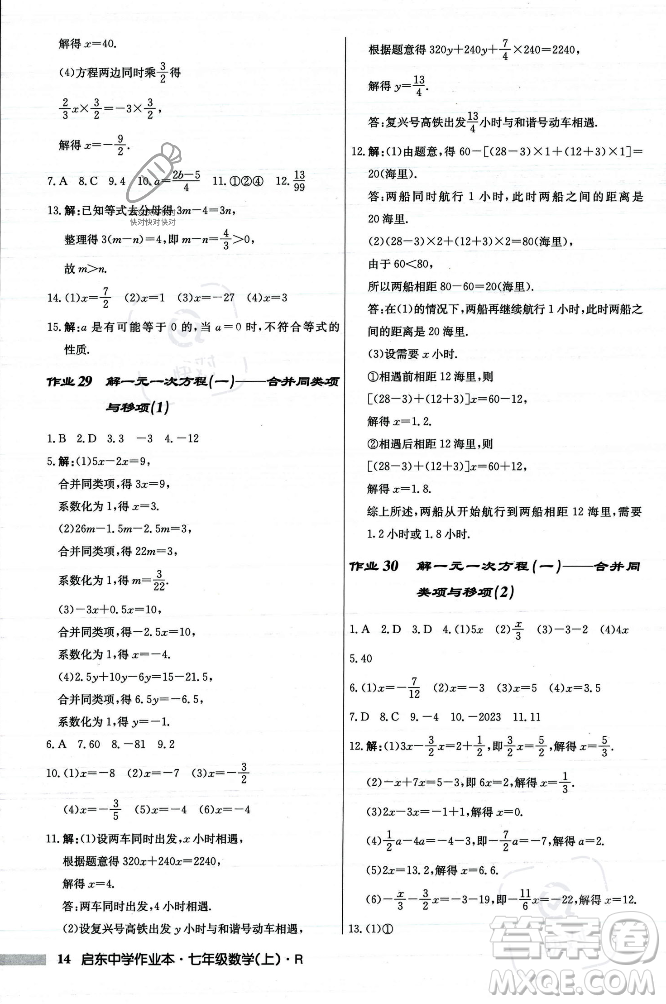 解得 x=40.
(4)方程两边同时乘3/2得
2/3x×3/2=-3×3/2,
解得 x=-9/2.
7.A 8.C 9.4 10.a=(2b-5)/4 11.①②④ 12.13/99
13.解:已知等式去分母得 3m-4=3n,
快对快对快对
整理得 3(m-n)=4,即 m-n=4/3>0,
故 m>n.
14.(1)x=7/2 (2)x=1 (3)x=-27 (4)x=3
15.解:a 是有可能等于 0 的,当 a=0 时,不符合等式的
性质.
作业 29 解一元一次方程(一)——合并同类项
与移项(1)
1.B 2.D 3.3 -3 4.-12
5.解:(1)5x-2x=9,
合并同类项,得 3x=9,
系数化为 1,得 x=3.
(2)26m-1.5m-2.5m=3,
合并同类项,得 22m=3,
系数化为 1,得 m=3/22.
(3)-3x+1.5x=6,
合并同类项,得-1.5x=6,
系数化为 1,得 x=-4.
(4)2.5y+10y-6y=15-21.5,
合并同类项,得 6.5y=-6.5,
系数化为 1,得 y=-1.
6.A 7.60 8.-81 9.2
10.(1)x=-8 (2)x=-7 (3)x=-3/2
(4)x=-3/5 (5)x=4 (6)x=2
11.解:(1)设两车同时出发,x 小时相遇,
根据题意得 320x+240x=2240,
解得 x=4.
答:两车同时出发,4 小时相遇.
(2)设复兴号高铁出发 y 小时与和谐号动车相遇,
14 启东中学作业本·七年级数学(上)·R
根据题意得 320y+240y+7/4×240=2240,
解得 y=13/4.
答:复兴号高铁出发13/4小时与和谐号动车相遇.
12.解:(1)由题意,得 60-[(28-3)×1+(12+3)×1]=
20(海里).
答:两船同时航行 1 小时,此时两船之间的距离是
20 海里.
(2)(28-3)×2+(12+3)×2=80(海里),
由于 60<80,
所以两船相距 80-60=20(海里).
答:在(1)的情况下,两船再继续航行 1 小时,此时的
距离是 20 海里.
(3)设需要 x 小时.
①相遇前相距 12 海里,则
[(28-3)+(12+3)]x=60-12,
解得 x=1.2.
②相遇后相距 12 海里,则
[(28-3)+(12+3)]x=60+12,
解得 x=1.8.
综上所述,两船从开始航行到两船相距 12 海里,需要
1.2 小时或 1.8 小时.
作业 30 解一元一次方程(一)——合并同
类项与移项(2)
1.A 2.D 3.D 4.(1)5x (2)x/3 (3)-3-2 (4)4x
5.40
6.(1)x=-7/12 (2)x=1 (3)x=-6 (4)x=3.5
7.D 8.C 9.-4 10.-2023 11.11
12.解:(1)3x-3/2x=2+1/2,即3/2x=5/2,解得 x=5/3.
(2)-3x-x=-4/3,即-4x=-4/3,解得 x=1/3.
(3)2x+3x=4+1,即 5x=5,解得 x=1.
(4)1/2a-4a=-1-6,即-7/2a=-7,解得 a=2.
(5)2x=0,解得 x=0.